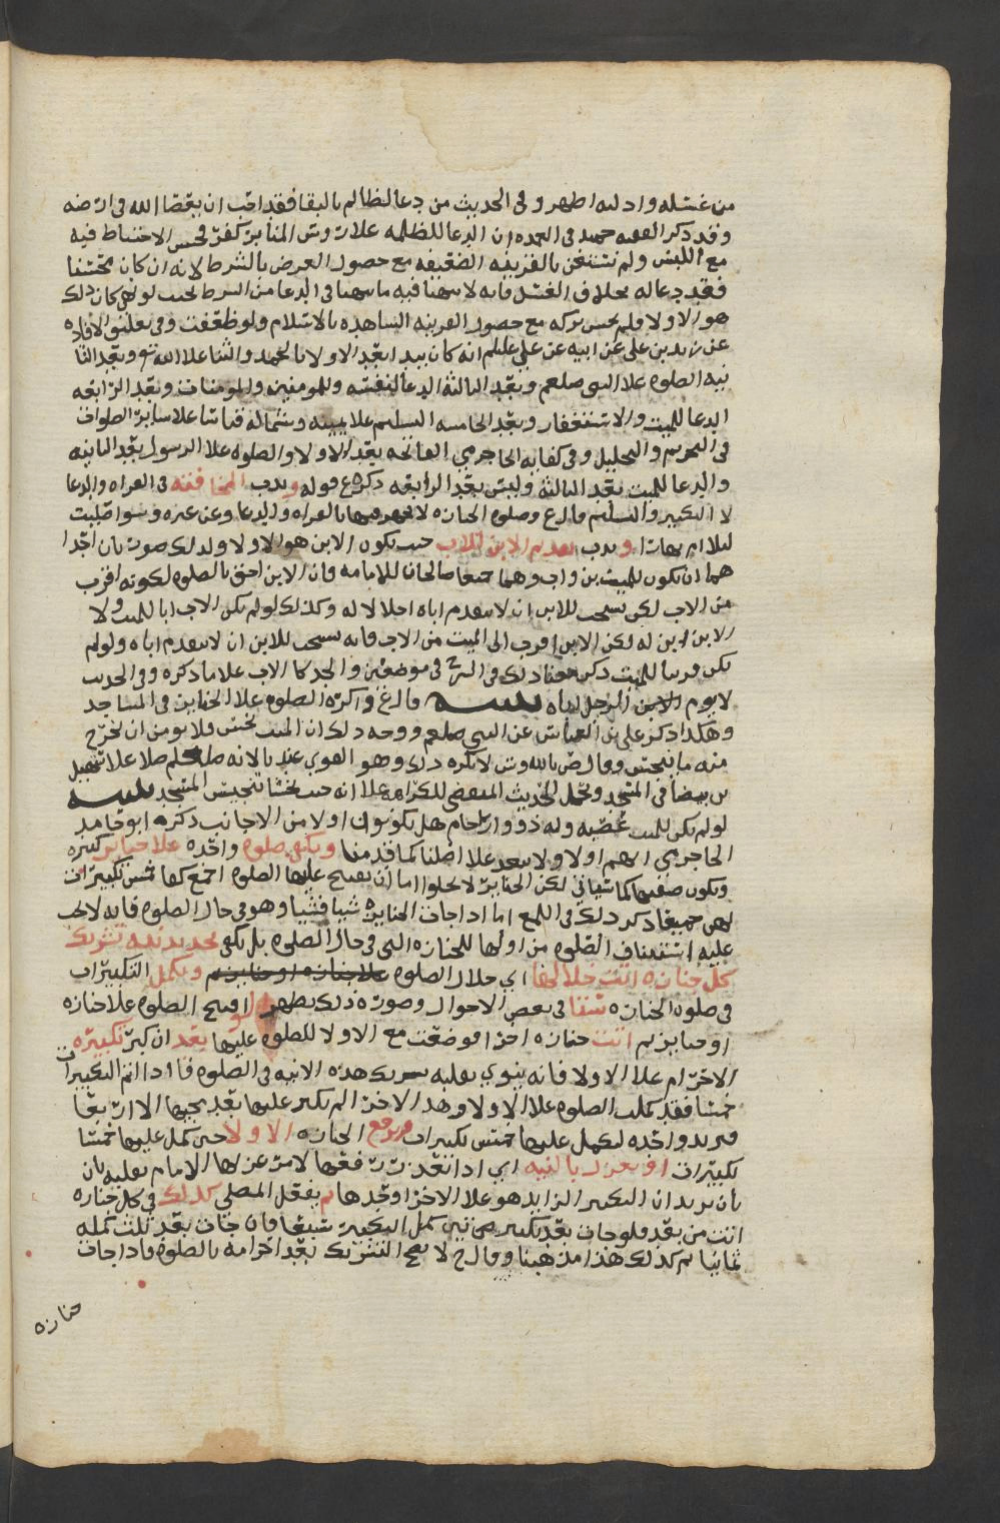 من غسله وادله اطهر وفي الحديث من دعا لظالم بالبقا فقد احب ان يعصا الله في ارضه
وقد ذكر الفقيه حميد في العمده ان الدعا للظلمه علا روس المنابر كفر فحسن الاحتياط فيه
مع اللبس ولم نستغن بالقرينه الضعيفه مع حصول العرض بالشرط لانه ان كان محسنا
فقد دعا له بخلاف الغسل فانه لا سهنا فيه ما سهنا في الدعا من الشرط لحيث لو كان ذلك
هو الاولا ولم يحسن تركه مع حصول القرينه الشاهده بالاسلام ولو ظعفت وفي تعليق الافاده
عن زيد بن علي عن ابيه عن علي عليلم انه كان يبدا بعد الاولا بالحمد والثنا علا الله تع وبعد الثا
نيه الصلوه علا النبي صلعم وبعد الثالثه الدعا لنفسه وللمومنين والمومنات وبعد الرابعه
الدعا للميت والاستغفار وبعد الخامسه التسليم علا يمينه وشماله قياسا علا ساير الصلوات
في التحريم والتحليل وفي كفايه الحاجرمي الفاتحه بعد الاولا والصلوه علا الرسول بعد الثانيه
والدعا للميت بعد الثالثه وليس بعد الرابعه ذكر ع قوله وندب المخافته في القراه والدعا
لا التكبير والتسليم قال ع وصلوه الجنازه لا يجهر فيها بالقراه والدعا وعن غيره وسوا صليت
ليلا او نهارا وندب تقديم الابن للاب حيث يكون الابن هو الاولا ولذلك صورتان احدا
هما ان يكون للميت بن واب وهما جميعا صالحان للامامه فان الابن احق بالصلوه لكونه اقرب
من الاب لكن يستحب للابن ان يقدم اباه اجلالا له وكذلك لو لم يكن الاب ابا للميت ولا
الابن ابن له لكن الابن اقرب الى الميت من الاب فانه يستحب للابن ان يقدم اباه ولو لم
يكن قريبا للميت ذكر معنا ذلك في الشرح في موضعين والجد كالاب علا ما ذكره وفي الحديث
لا يوم الابن الرجل اباه تنبيه قال ع واكره الصلوه علا الجنايز في المساجد
وهكذا ذكر علي بن العباس عن النبي صلعم ووجه ذلك ان الميت نجس ولا يومن ان يخرج
منه ما ينجس وقال ض بالله وش لا يكره ذلك وهو القوي عندنا لانه صلعم صلا علا سهيل
بن بيضا في المسجد ونحمل الحديث المقتضي للكراهه علا انه حيث نخشا تنجيس المسجد تنبيه
لو لم يكن للميت عصبه وله ذووا ارحام هل يكونوا اولا من الاجانب ذكره ابو حامد
الحاجرمي انهم اولا ولا يبعد علا اصلنا كما قدمنا وتكفي صلوه واحده علا جنايز كثيره
وتكون صفتها كما سياتي لكن الجنايز لا يخلوا اما ان يفتتح عليها الصلوه اجمع كفا خمس تكبيرات
لهن جميعا ذكر ذلك في اللمع اما اذا جات الجنايز شيا فشيا وهو في حال الصلوه فانه لا يجب
عليه استئناف الصلوه من اولها للجنازه التي في حال الصلوه بل يكفي تجديد نيه تشريك
كل جنازه اتت خلالها اي خلال الصلوه وتكمل التكبيرات
في صلوه الجنازه ستا في بعض الاحوال وصوره ذلك تظهر لو افتتح الصلوه علا جنازه
او جنايز ثم اتت جنازه اخرا فوضعت مع الاولا للصلوه عليها بعد ان كبر تكبيره
الاحرام علا الاولا فانه ينوي بقلبه تشريك هذه الاتيه في الصلوه فاذا اتم التكبيرات
خمسا فقد كملت الصلوه علا الاولا وهذه الاخرا لم يكبر عليها بعد مجيها الا اربعا
فيزيد واحده لتكمل عليها خمس تكبيرات وترفع الجنازه الاولا حين كمل عليها خمسا
تكبيرات او تعزل بالنيه اي اذا تعذر رفعها لامر عزلها الامام بقلبه بان
بان يريد ان التكبير الزايد هو علا الاخرا وحدها ثم يفعل المصلي كذلك في كل جنازه
اتت من بعد فلو جات بعد تكبيرتين كمل التكبير سبعا فان جات بعد ثلث كمله
ثمانيا ثم كذلك هذا مذهبنا وقال ح لا يصح التشريك بعد احرامه بالصلوه فاذا جات
جنازه